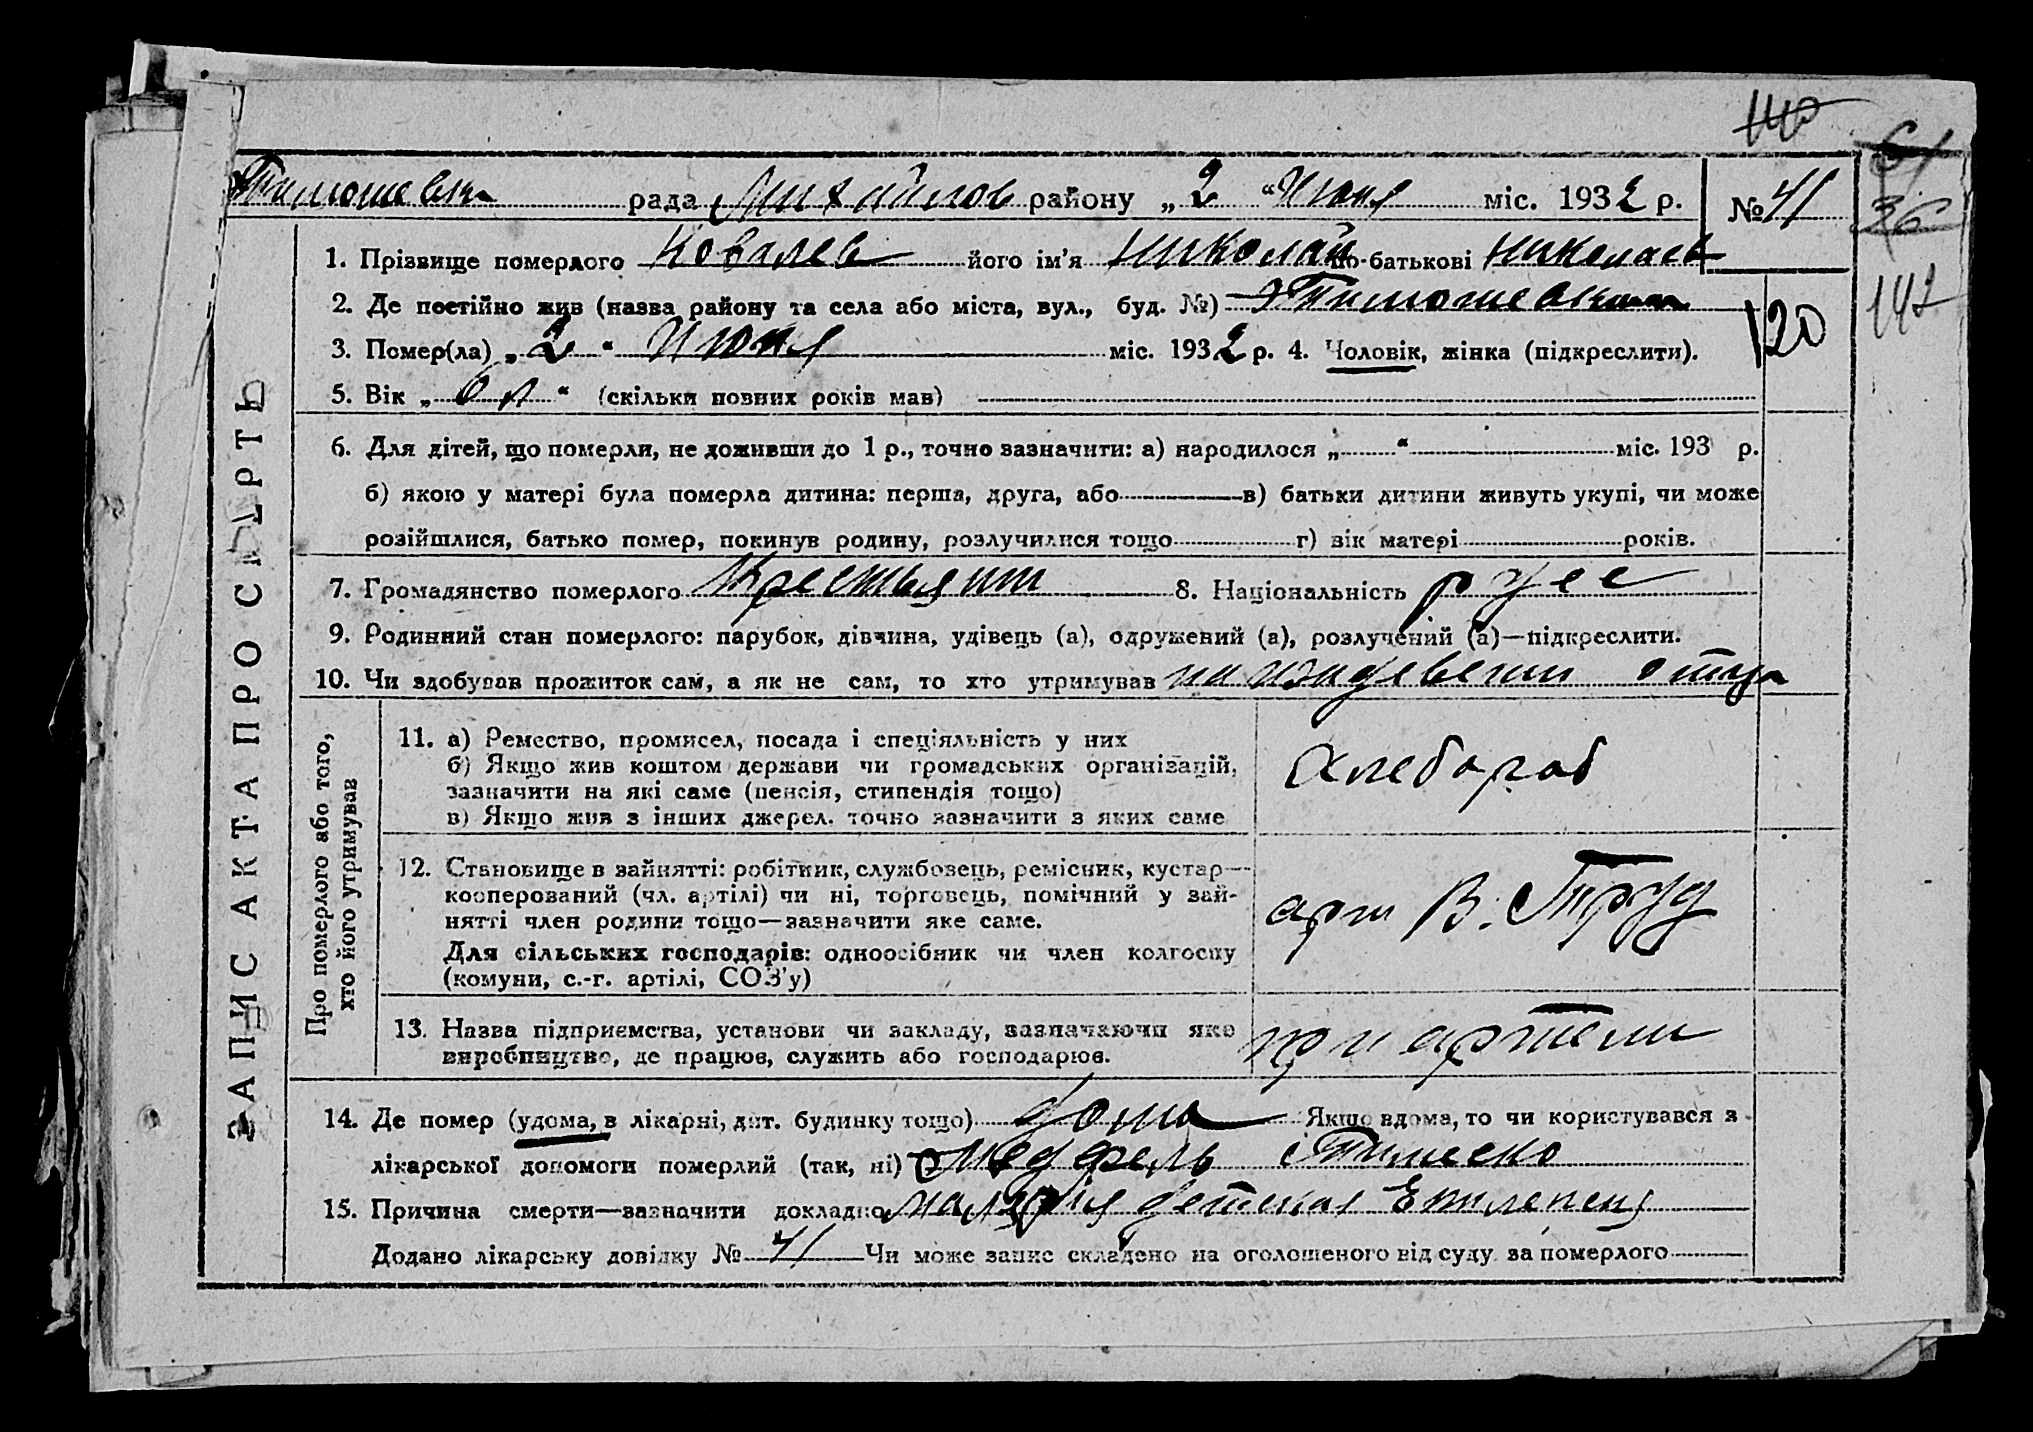 140
Тимошевка рада Михайлов району „2“ Июня міс. 1932 р. № 41
61
36
142
120
ЗАПИС АКТА ПРО СМЕРТЬ
1. Прізвище померлого Ковалев його ім'я Николай по-батькові Николаев
2. Де постійно жив (назва району та села або міста, вул., буд. №) Тимошевка
3. Помер(ла) „2“ Июня міс. 1932 р. 4. Чоловік, жінка (підкреслити).
5. Вік „6 л“ (скільки повних років мав)
6. Для дітей, що померли, не доживши до 1 р., точно зазначити: а) народилося „ “ міс. 193 р.
б) якою у матері була померла дитина: перша, друга, або в) батьки дитини живуть укупі, чи може
розійшлися, батько помер, покинув родину, розлучилися тощо г) вік матері років.
7. Громадянство померлого Крестьянин 8. Національність русс
9. Родинний стан померлого: парубок, дівчина, удівець (а), одружений (а), розлучений (а)—підкреслити.
10. Чи здобував прожиток сам, а як не сам, то хто утримував на иждевении отца
Про померлого або того,
хто його утримував
11. а) Ремество, промисел, посада і спеціяльність у них
б) Якщо жив коштом держави чи громадських організацій,
зазначити на які саме (пенсія, стипендія тощо)
в) Якщо жив з інших джерел, точно зазначити з яких саме
Хлебороб
12. Становище в зайнятті: робітник, службовець, ремісник, кустар—
кооперований (чл. артілі) чи ні, торговець, помічний у зай-
нятті член родини тощо—зазначити яке саме.
Для сільських господарів: одноосібник чи член колгоспу
(комуни, с.-г. артілі, СОЗ'у)
арт В. Труд
13. Назва підприємства, установи чи закладу, зазначаючи яке
виробництво, де працює, служить або господарює.
при артели
14. Де помер (удома, в лікарні, дит. будинку тощо) дома Якщо вдома, то чи користувався з
лікарської допомоги померлий (так, ні)
15. Причина смерти—зазначити докладно малярия детская Епилепсия
Додано лікарську довідку № 41 Чи може запис складено на оголошеного від суду за померлого